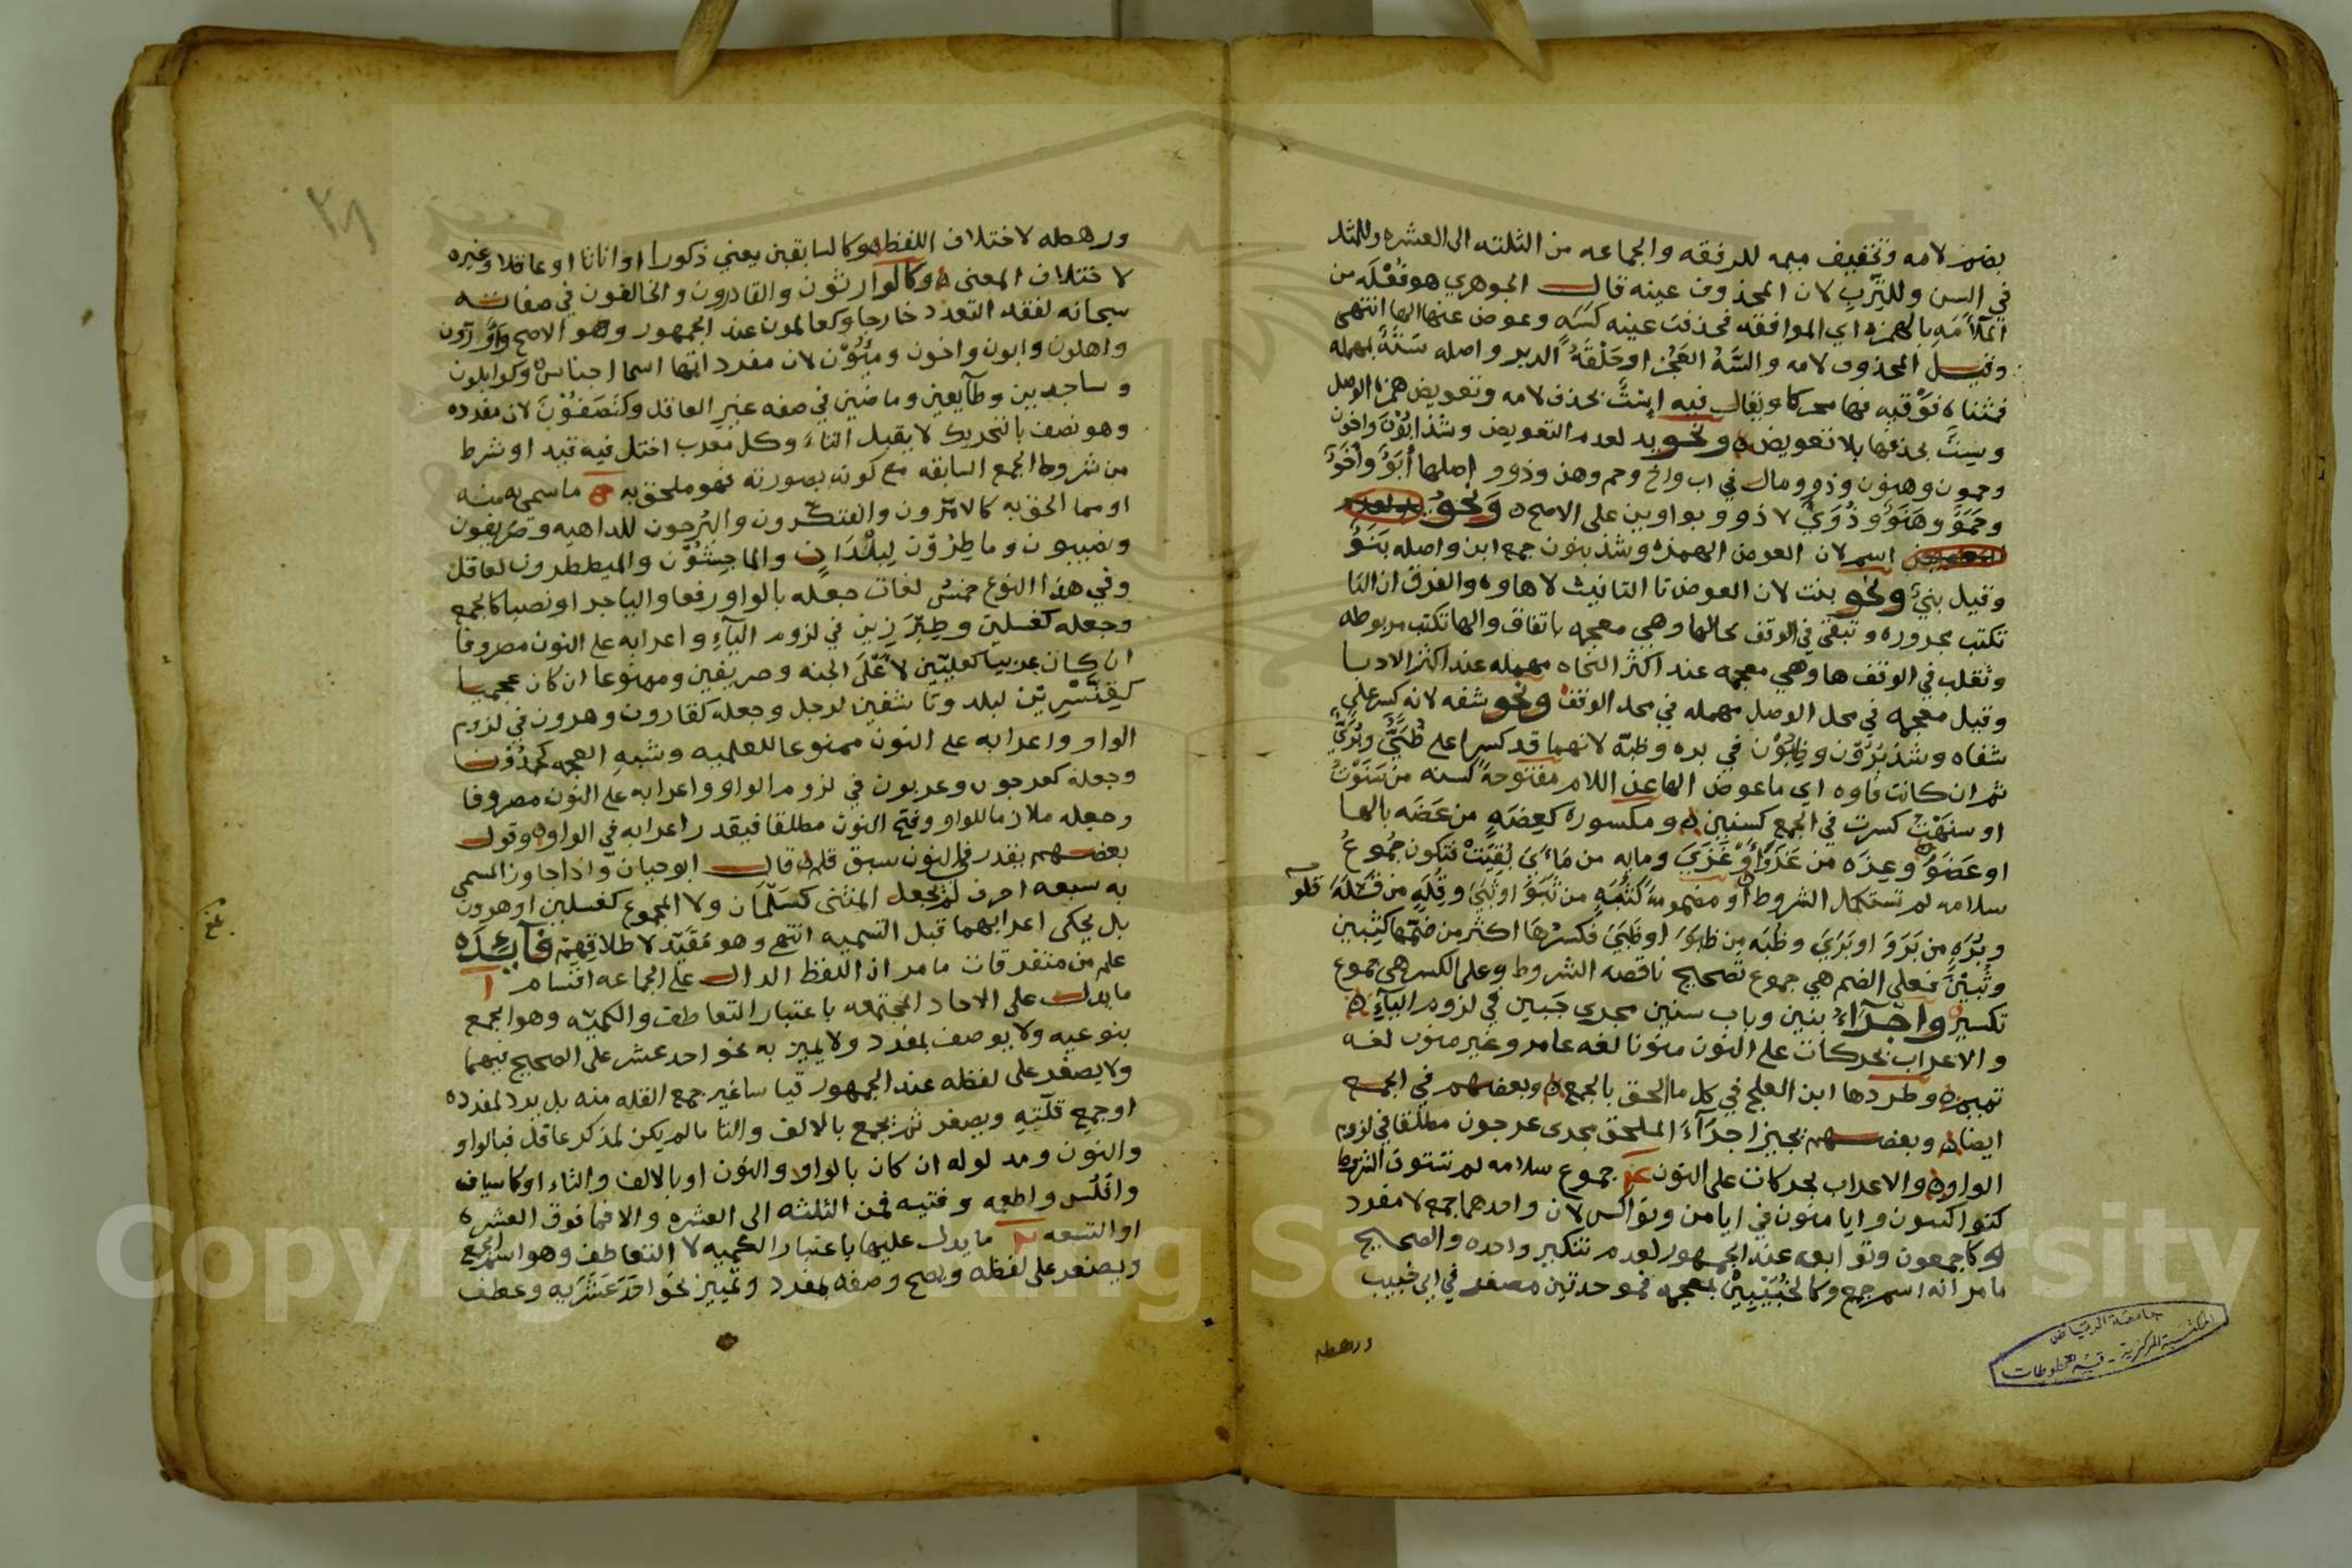 بضم لامه وتخفيف ميمه للرفقه والجماعه من الثلثه الى العشره وللمثل
في السن وللترب لان المحذوف عينه قال الجوهري هو فعله من
الملامه بالهمزه اي الموافقه فحذفت عينه كسه وعوض عنها الها انتهى
وقيل المحذوف لامه والسه العجز او حلقة الدبر واصله سته بمهمله
فمثناه فوقيه فها محركا ويقال فيه است بحذف لامه وتعويض همزة الوصل
وست بحذفها بلا تعويض ونحو يد لعدم التعويض وشذ ابون واخون
وحمون وهنون وذوو ومال في اب واخ وحم وهن وذو و اصلها ابو واخو
وحمو وهنو وذوي لا ذوو بواوين على الاصح ونحو
اسم لان العوض الهمزه وشذ بنون جمع ابن واصله بنو
وقيل بني ونحو بنت لان العوض تا التانيث لا هاوه والفرق ان التا
تكتب مجروره وتبقى في الوقف بحالها وهي معجمه باتفاق والها تكتب مربوطه
وتقلب في الوقف ها وهي معجمه عند اكثر النحاه مهمله عند اكثر الادبا
وقيل معجمه في محل الوصل مهمله في محل الوقف ونحو شفه لانه كسر على
شفاه وشذ برون وظبون في بره وظبة لانهما قد كسرا على ظبى وبرى
ثم ان كانت فاوه اي ما عوض الها عن اللام مفتوحة كسنه من سنوت
او سنهت كسرت في الجمع كسنين ومكسوره كعضه من عضه بالها
او عضو وعزه من عزو او عزي ومايه من ماي بقيت فتكون جموع
سلامه لم تستكمل الشروط او مضمومة كثبه من ثبو او ثبي وقله من قلو
وبره من برو او بري وظبه من ظبو او ظبي فكسرها اكثر من ضمها كثبين
وثبين فعلى الضم هي جموع تصحيح ناقصه الشروط وعلى الكسر هي جموع
تكسير واجراء بنين وباب سنين مجرى حين في لزوم الياء
والاعراب بحركات على النون منونا لغه عامر وغير منون لغه
تميم وطردها ابن العلج في كل ما الحق بالجمع وبعضهم في الجمع
ايضا وبعضهم يجيز اجراء الملحق مجرى عرجون مطلقا في لزوم
الواو والاعراب بحركات على النون جموع سلامه لم تستوف الشروط
كنواكسون وايامنون في ايامن ونواكس لان واحدهما جمع لا مفرد
او كاجمعون وتوابعه عند الجمهور لعدم تنكير واحده والصحيح
ما مر انه اسم جمع وكالخبيبين بمعجمه فموحدتين مصغر في ابي خبيب
ورهطه
جامعة الرياض
المكتبة المركزية - قسم المخطوطات
٢٨
ورهطه لاختلاف اللفظ وكالسابقين يعني ذكورا او اناثا او عاقلا وغيره
لاختلاف المعنى وكالوارثون والقادرون والخالقون في صفاته
سبحانه لفقد التعدد خارجا وكعالمون عند الجمهور وهو الاصح
واهلون وابون واخون ومئون لان مفرداتها اسما اجناس وكوابلون
وساجدين وطايعين وماضين في صفه غير العاقل وكنصفون لان مفرده
وهو نصف بالتحريك لا يقبل التاء وكل معرب اختل فيه قيد او شرط
من شروط الجمع السابقه مع كونه بصورته فهو ملحق به ما سمي به منه
او مما الحق به كالامرون والفتكرون والبرحون للداهيه وصريفون
ونصيبون وماطرون لبلدان والماجشون والميططرون لعاقل
وفي هذا النوع خمس لغات جعله بالواو رفعا واليا جرا ونصبا كالجمع
وجعله كغسلين وطبرزين في لزوم الياء واعرابه على النون مصروفا
ان كان عربيا كعليين لاعلى الجنه وصريفين وممنوعا ان كان عجميا
كقنسرين لبلد وتاشفين لرجل وجعله كقارون وهرون في لزوم
الواو واعرابه على النون ممنوعا للعلميه وشبه العجمه كحمدون
وجعله كعرجون وعربون في لزوم الواو واعرابه على النون مصروفا
وجعله ملازما للواو وفتح النون مطلقا فيقدر اعرابه في الواو وقول
بعضهم يقدر في النون سبق قلم قال ابو حيان واذا جاوز المسمى
به سبعه احرف لم يجعل المثنى كسلمان ولا المجموع كغسلين او هرون
بل يحكى اعرابهما قبل التسميه انتهى وهو مقيد لاطلاقهم فايده
علم من متفرقات ما مر ان اللفظ الدال على الجماعه اقسام ا
ما يدل على الاحاد المجتمعه باعتبار التعاطف والكميه وهو الجمع
بنوعيه ولا يوصف بمفرد ولا يميز به نحو احد عشر على الصحيح فيهما
ولا يصغر على لفظه عند الجمهور قياسا غير جمع القله منه بل يرد لمفرده
او جمع قلته ويصغر ثم يجمع بالالف والتا ما لم يكن لمذكر عاقل فبالواو
والنون ومدلوله ان كان بالواو والنون او بالالف والتاء او كاسياف
وافلس واطعمه وفتيه فمن الثلثه الى العشره والا فما فوق العشره
او التسعه ما يدل عليها باعتبار الكميه لا التعاطف وهو اسم الجمع
ويصغر على لفظه ويصح وصفه بمفرد وتمييز نحو احد عشر به وعطف